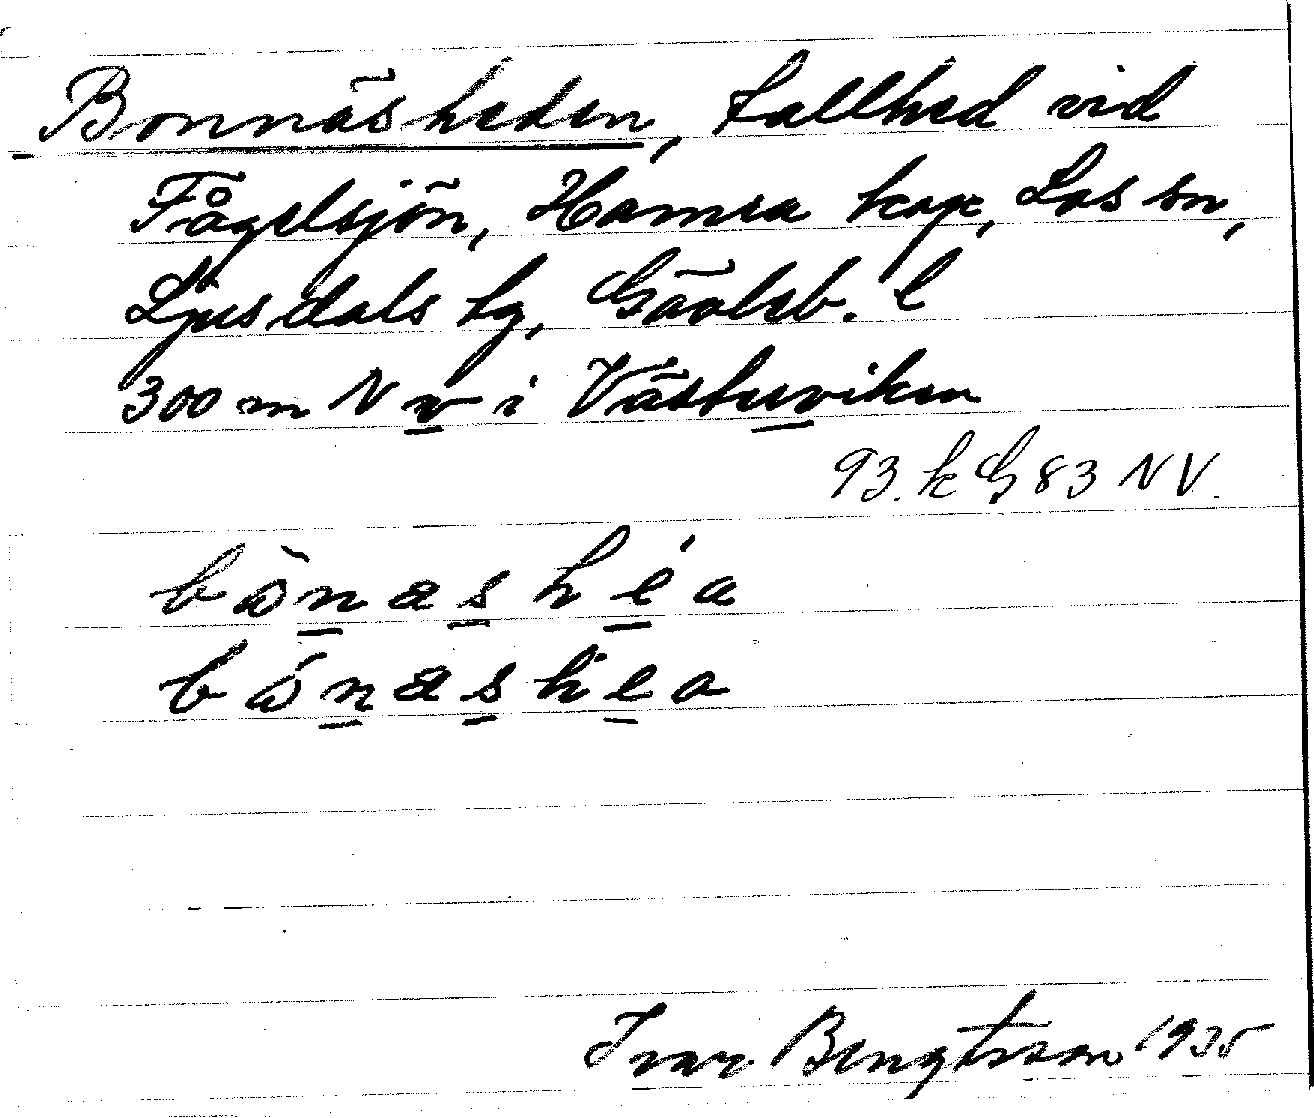 Bonnäsheden, tallhed vid
Fågelsjön, Hamra kap, Los sn,
Ljusdals tg, Gävleb. l
300 m N v i Västerviken
93. k G 83 NV.
Ivar Bengtsson 1935